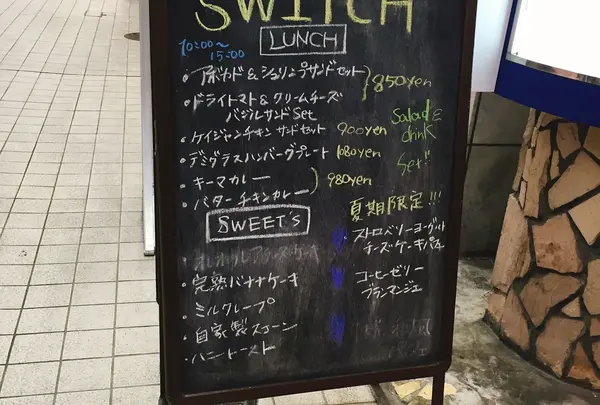 SWITCH
LUNCH
10:00~
15:00
・アボカド&シュリンプサンドセット
850yen
・ドライトマト&クリームチーズ
バジルサンドSet
・ケイジャンチキンサンドセット 900yen
・デミグラスハンバーグプレート 1080yen
・キーマカレー
・バターチキンカレー
980yen
Salad&
drink
Set!!
SWEET'S
・完熟バナナケーキ
・ミルクレープ
・自家製スコーン
・ハニートースト
夏期限定!!!
ストロベリーヨーグルト
チーズケーキパフェ
コーヒーゼリー
ブランマンジェ